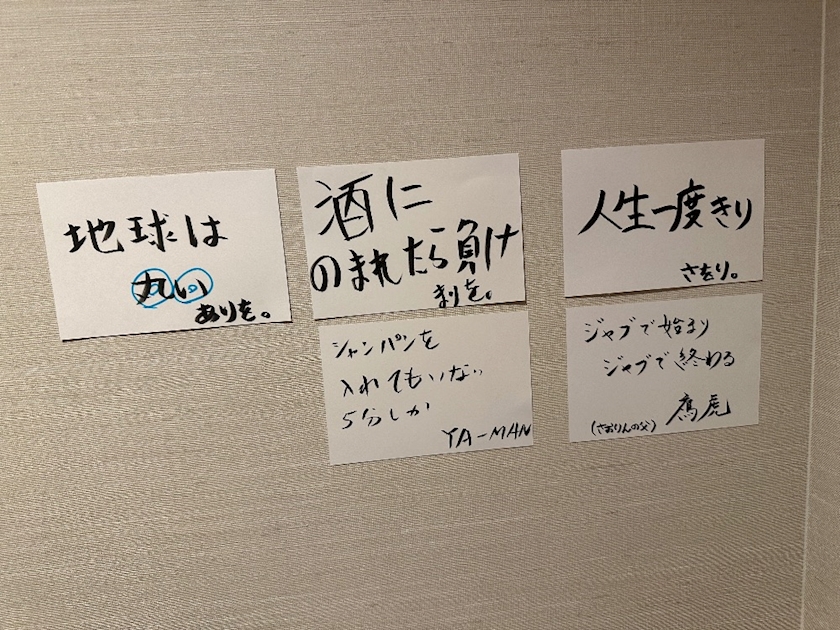 地球は
丸い
ありを。
酒に
のまれたら負け
まりを。
人生一度きり
さをり。
シャンパンを
入れてもいない
5分しか
YA-MAN
ジャブで始まり
ジャブで終わる
(さおりんの父) 鷹虎